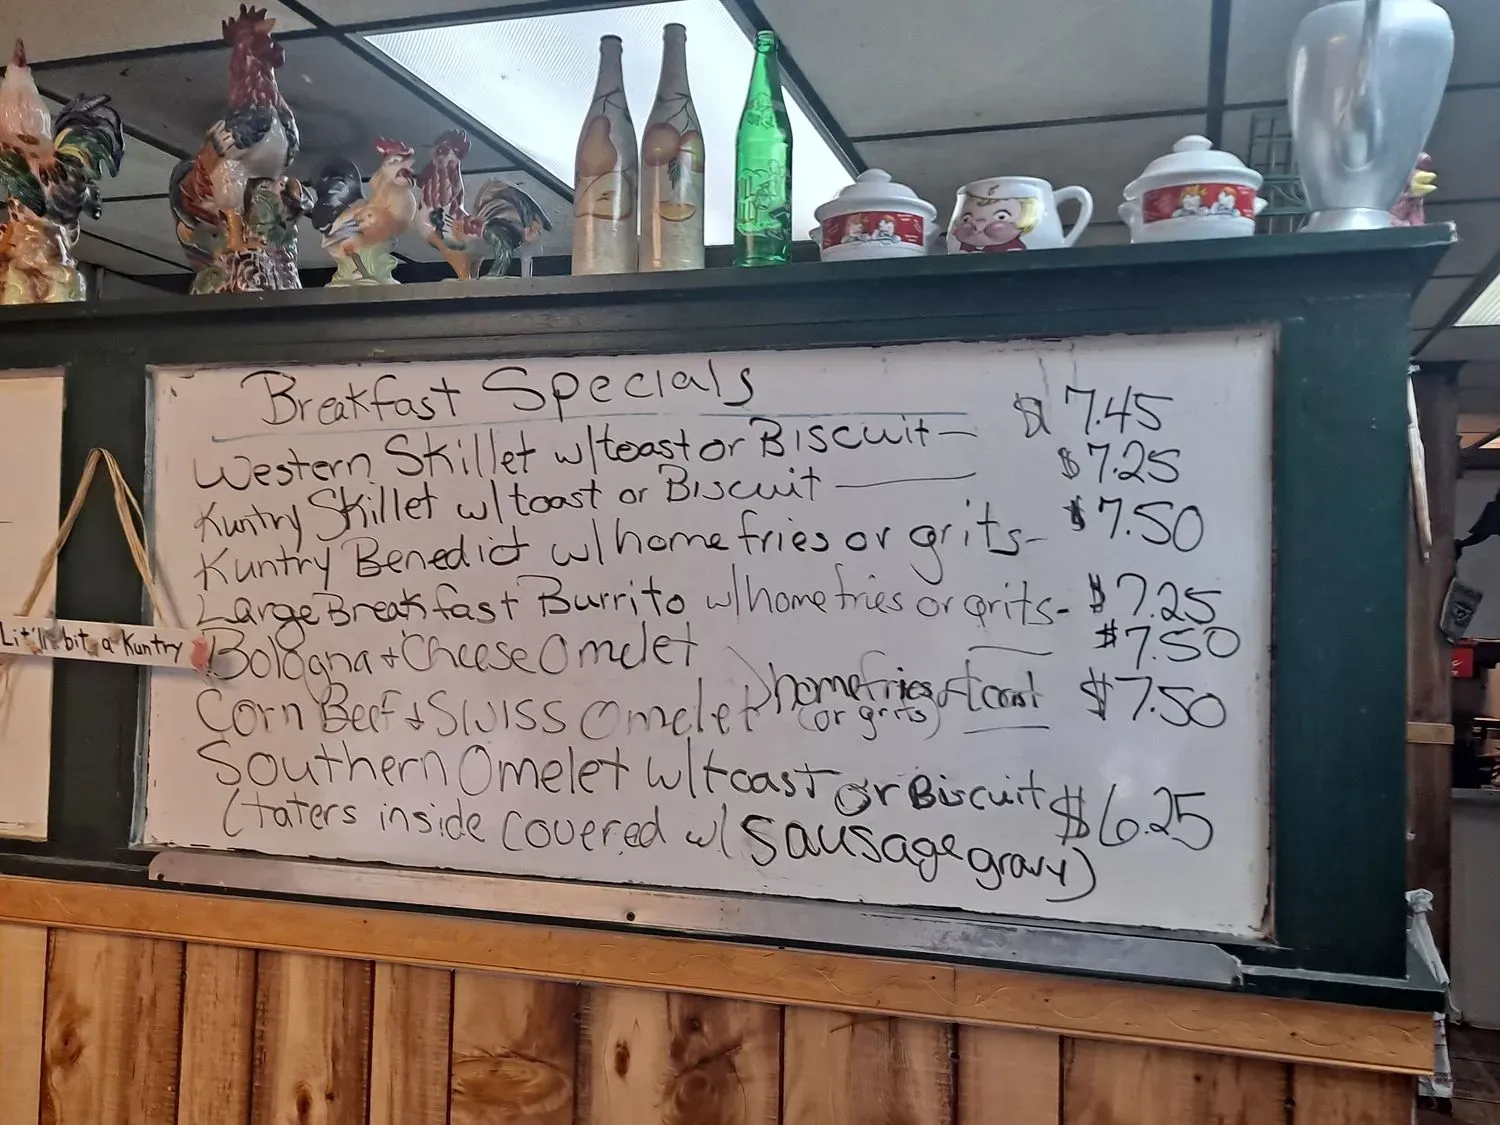 Breakfast Specials
Western Skillet w/toast or Biscuit — $7.45
Kuntry Skillet w/toast or Biscuit — $7.25
Kuntry Benedict w/home fries or grits - $7.50
Large Breakfast Burrito w/home fries or grits - $7.25
Bologna + Cheese Omelet — $7.50
homefries + toast
(or grits)
Corn Beef + Swiss Omelet — $7.50
Southern Omelet w/toast or Biscuit $6.25
(taters inside covered w/ sausage gravy)
Lit'll bit a Kuntry